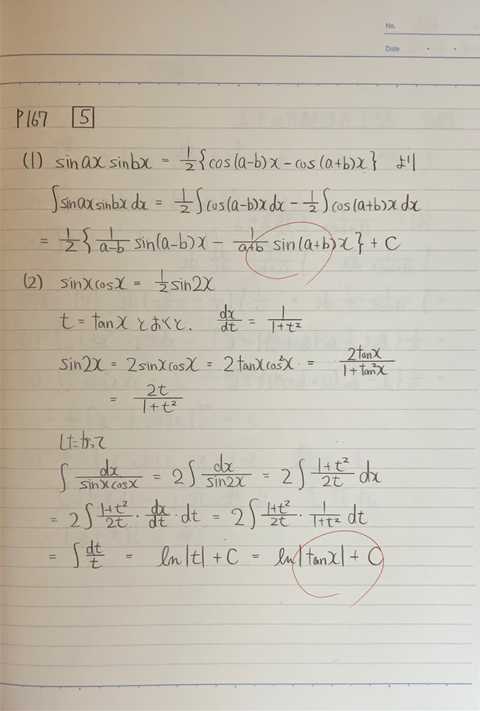 No.
Date
P167 [5]
(1) sinax sinbx = 1/2{cos(a-b)x - cos(a+b)x} より
∫sinax sinbx dx = 1/2∫cos(a-b)x dx - 1/2∫cos(a+b)x dx
= 1/2{1/(a-b) sin(a-b)x - 1/(a+b) sin(a+b)x} + C
(2) sinxcosx = 1/2 sin2x
t = tanx とおくと、 dx/dt = 1/(1+t²)
sin2x = 2sinxcosx = 2tanxcos²x = 2tanx/(1+tan²x)
= 2t/(1+t²)
したがって
∫dx/(sinxcosx) = 2∫dx/sin2x = 2∫(1+t²)/2t dx
= 2∫(1+t²)/2t · dx/dt · dt = 2∫(1+t²)/2t · 1/(1+t²) dt
= ∫dt/t = ln|t| + C = ln|tanx| + C